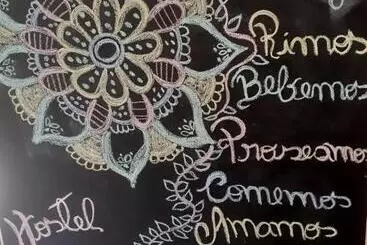 Rimos
Bebemos
Proseamos
Comemos
Amamos
Hostel